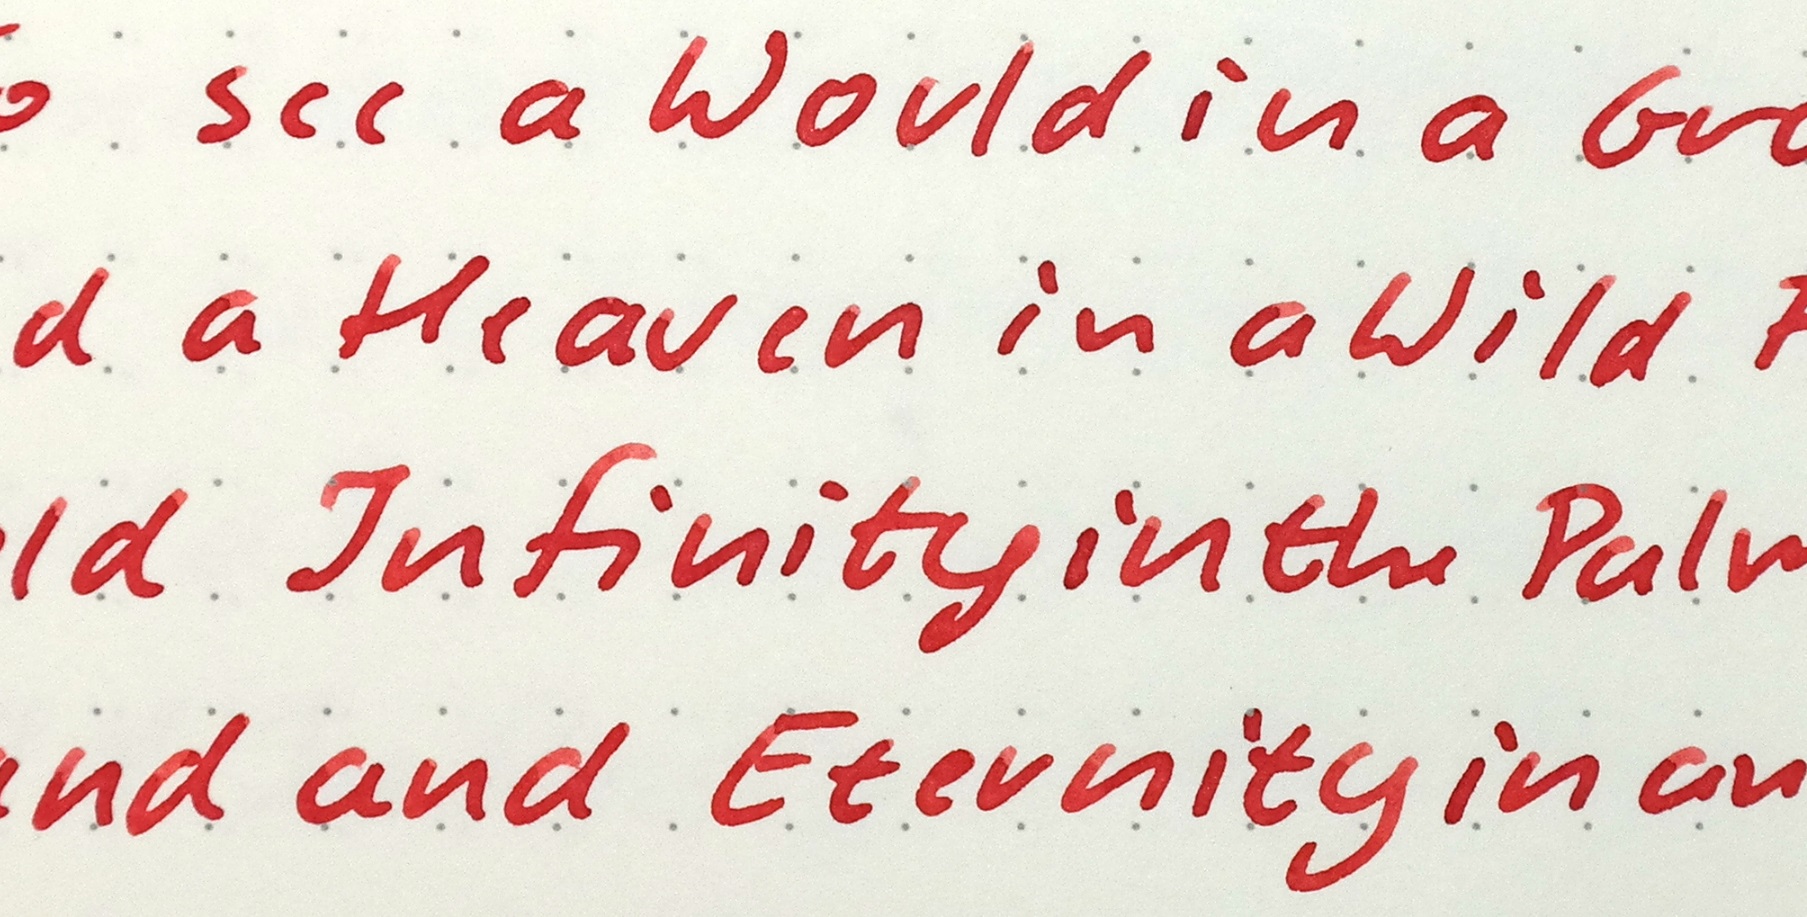 To see a World in a Gra
d a Heaven in a Wild F
old Infinity in the Palm
and and Eternity in an